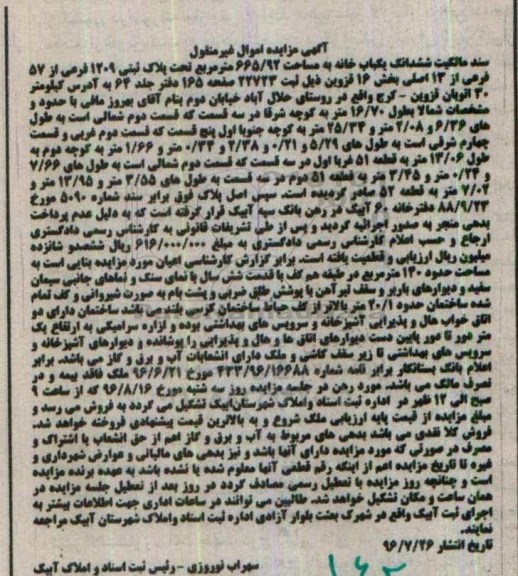 آگهی مزایده اموال غیرمنقول
سند مالکیت ششدانگ یکباب خانه به مساحت ۶۶۵/۹۲ مترمربع تحت پلاک ثبتی ۱۲۰۹ فرعی از ۵۷
فرعی از ۱۳ اصلی بخش ۱۶ قزوین ذیل ثبت ۲۲۷۲۳ صفحه ۱۶۵ دفتر جلد ۶۴ به آدرس کیلومتر
۳۰ اتوبان قزوین - کرج واقع در روستای جلال آباد خیابان دوم بنام آقای بهروز مافی با حدود و
مشخصات شمالا بطول ۱۶/۷۰ متر به کوچه شرقا در سه قسمت که قسمت دوم شمالی است به طول
های ۶/۳۶ و ۲/۰۸ متر و ۲۵/۳۴ متر به کوچه جنوبا اول پنج قسمت که قسمت دوم غربی و قسمت
چهارم شرقی است به طول های ۵/۲۹ و ۰/۲۱ و ۲/۳۸ و ۰/۳۴ متر و ۱/۶۶ متر به کوچه دوم به
طول ۱۳/۰۶ متر به قطعه ۵۱ غربا اول در سه قسمت که قسمت دوم شمالی است به طول های ۷/۶۶
و ۰/۲۳ متر و ۳/۴۵ متر به قطعه ۵۱ دوم در سه قسمت به طول های ۳/۵۵ متر و ۱۳/۹۵ متر و
۷/۰۲ متر به قطعه ۵۲ صادر گردیده است. سپس اصل پلاک فوق برابر سند شماره ۵۰۹۰ مورخ
۸۸/۹/۲۳ دفترخانه ۶۰ آبیک در رهن بانک سپه آبیک قرار گرفته است که به دلیل عدم پرداخت
بدهی منجر به صدور اجرائیه گردید و پس از طی تشریفات قانونی به کارشناس رسمی دادگستری
ارجاع و حسب اعلام کارشناس رسمی دادگستری به مبلغ ۶۱۶/۰۰۰/۰۰۰ ریال ششصدو شانزده
میلیون ریال ارزیابی و قطعیت یافته است. برابر گزارش کارشناسی اعیان مورد مزایده بنایی است به
مساحت حدود ۱۴۰ مترمربع در طبقه هم کف با قدمت شش سال با نمای سنگ و نماهای جانبی سیمان
سفید و دیوارهای باربر و سقف تیرآهن با پوشش طاق ضربی و پشت بام به صورت شیروانی و کف تمام
شده ساختمان حدود ۲۰/۱ متر بالاتر از کف حیاط ساختمان کرسی بلند می باشد ساختمان دارای دو
اتاق خواب هال و پذیرایی آشپزخانه و سرویس های بهداشتی بوده و ازاره سرامیکی به ارتفاع یک
متر دور تا دور پایین دست دیوارهای اتاق ها و هال و پذیرایی را پوشانده و دیوارهای آشپزخانه و
سرویس های بهداشتی تا زیر سقف کاشی و ملک دارای انشعابات آب و برق و گاز می باشد. برابر
اعلام بانک بستانکار برابر نامه شماره ۴۳۳/۹۶/۱۶۶۸۸ مورخ ۹۶/۶/۲۱ ملک فاقد بیمه و در
تصرف مالک می باشد. مورد رهن در جلسه مزایده روز سه شنبه مورخ ۹۶/۸/۱۶ که از ساعت ۹
صبح الی ۱۲ ظهر در اداره ثبت اسناد واملاک شهرستان آبیک تشکیل می گردد به فروش می رسد و
مبلغ مزایده از قیمت پایه ارزیابی ملک شروع و به بالاترین قیمت پیشنهادی فروخته خواهد شد.
فروش کلا نقدی می باشد بدهی های مربوط به آب و برق و گاز اعم از حق انشعاب یا اشتراک و
مصرف در صورتی که مورد مزایده دارای آنها باشد و نیز بدهی های مالیاتی و عوارض شهرداری و
غیره تا تاریخ مزایده اعم از اینکه رقم قطعی آنها معلوم شده یا نشده باشد به عهده برنده مزایده
است و چنانچه روز مزایده با تعطیل رسمی مصادف گردد در روز بعد از تعطیل جلسه مزایده در
همان ساعت و مکان تشکیل خواهد شد. طالبین می توانند در ساعات اداری جهت اطلاعات بیشتر به
اجرای ثبت آبیک واقع در شهرک بعثت بلوار آزادی اداره ثبت اسناد واملاک شهرستان آبیک مراجعه
نمایند.
تاریخ انتشار ۹۶/۷/۲۶
سهراب نوروزی - رئیس ثبت اسناد و املاک آبیک